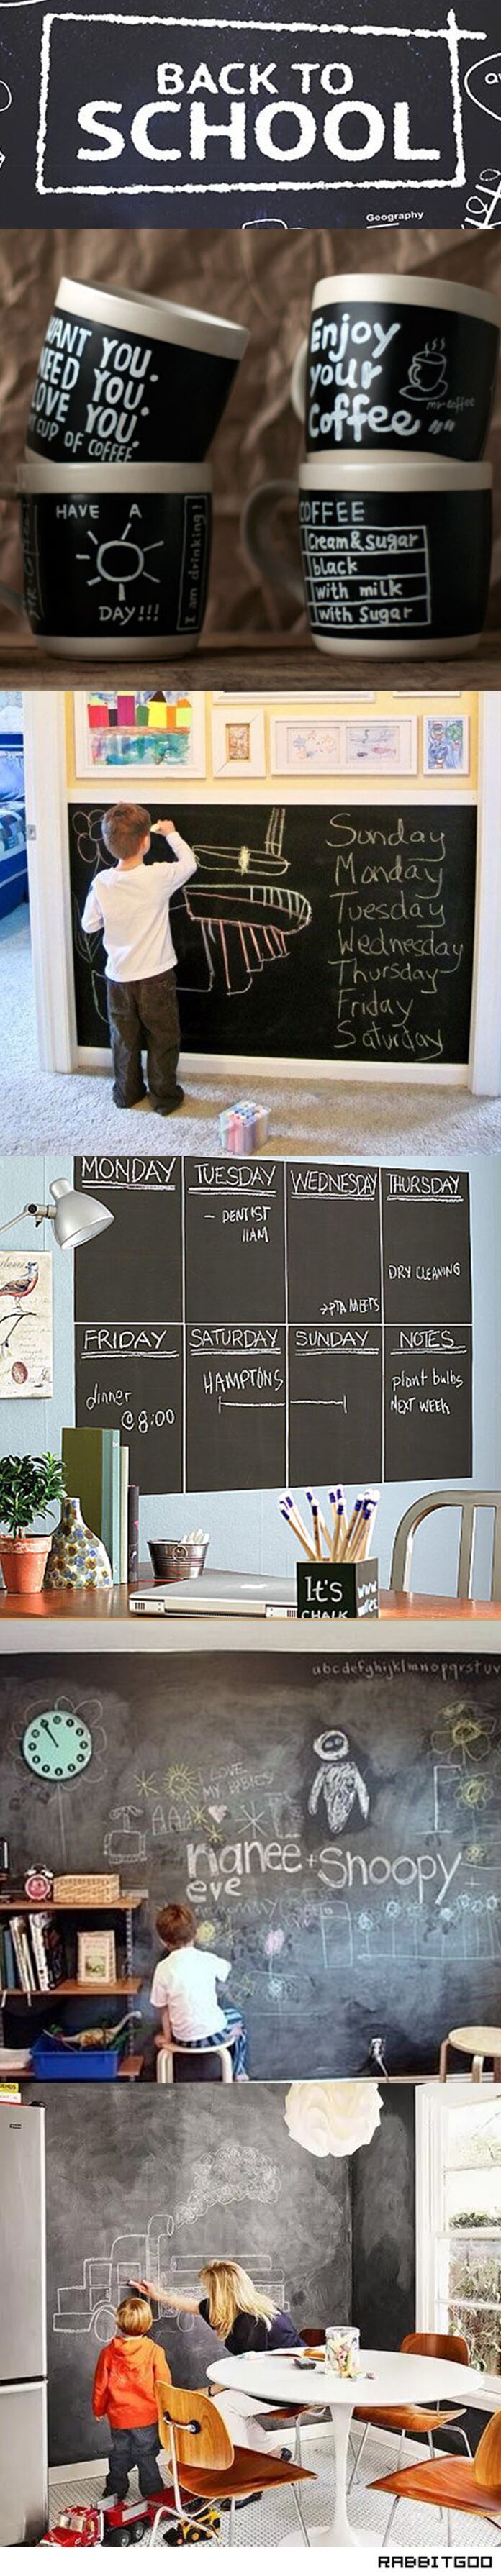 BACK TO
SCHOOL
Geography
WANT YOU.
NEED YOU.
LOVE YOU.
CUP OF COFFEE
Enjoy
your
Coffee
mr coffee
HAVE A
DAY!!!
I am drinking!
COFFEE
Cream & sugar
black
with milk
with Sugar
Sunday
Monday
Tuesday
Wednesday
Thursday
Friday
Saturday
MONDAY
TUESDAY
WEDNESDAY
THURSDAY
- DENTIST
11AM
→PTA MEETS
DRY CLEANING
FRIDAY
SATURDAY
SUNDAY
NOTES
dinner
@ 8:00
HAMPTONS
plant bulbs
NEXT WEEK
It's
CHALK
abcdefghijklmnopqrstuv
I LOVE
MY BABIES
nanee + Snoopy
eve
RABBITGOO